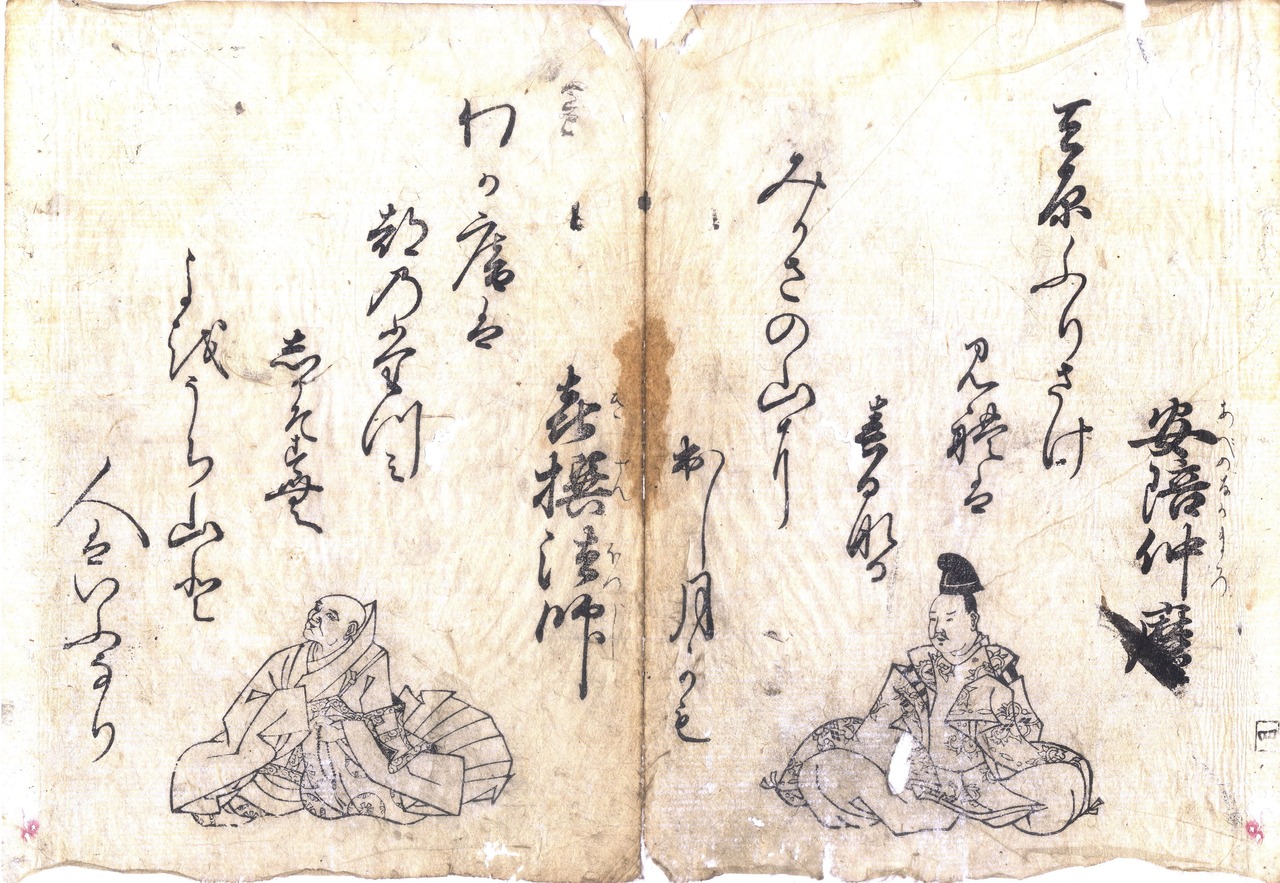 安陪仲麿
あべのなかまろ
天原ふりさけ
見禮は
春日那る
みかさの山に
出し月かも
喜撰法師
きせんほつし
わか庵は
都乃堂川ミ
志かそ春む
よ越うち山と
人はいふなり